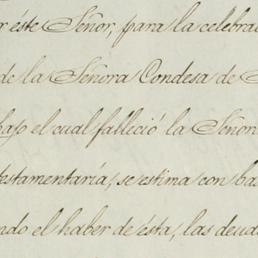 r éste Señor, para la celebrac
de la Señora Condesa de
bajo el cual falleció la Señor
testamentaría, se estima con bas
ndo el haber de ésta, las deud